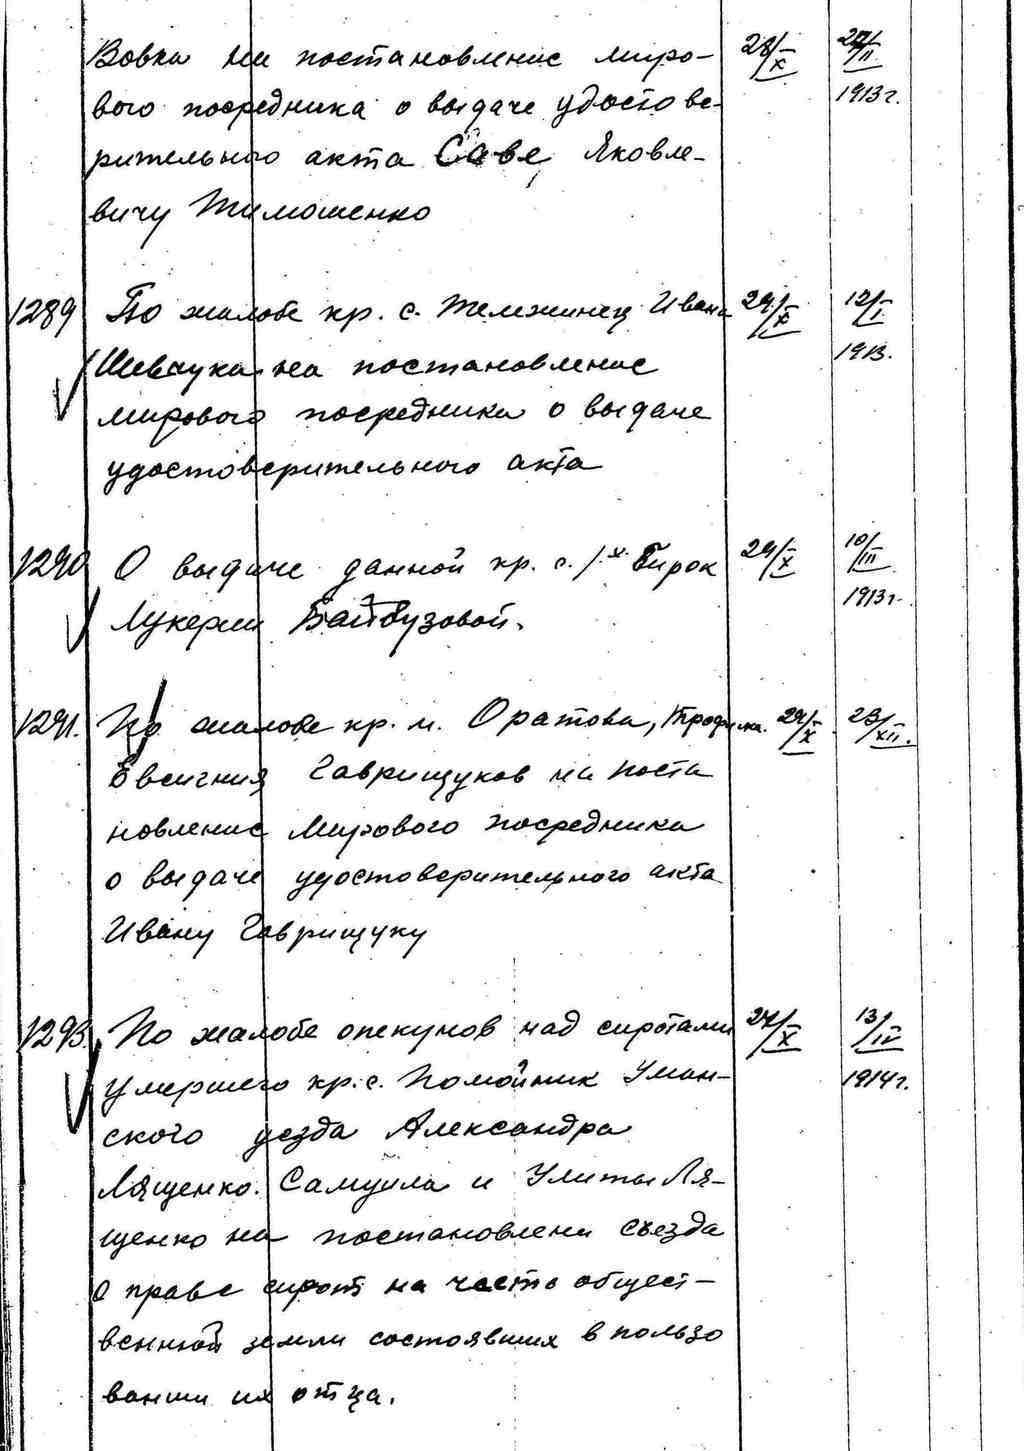 Вовка на постановление миро- 28/X 27/II
вого посредника о выдаче удостове- 1913 г.
рительного акта Саве Яковле-
вичу Тимошенко
1289 По жалобе кр. с. Ивана 29/X 12/I
Шевчука на постановление 1913.
мирового посредника о выдаче
удостоверительного акта
1290 О выдаче данной кр. с. Бирок 29/X 10/III
Лукерии Байбузовой. 1913 г.
1291. По жалобе кр. м. Оратова, Трофима. 29/X 23/XII.
Евсигния Гаврищуков на поста
новление Мирового посредника
о выдаче удостоверительного акта
Ивану Гаврищуку
1293. По жалобе опекунов над сиротами 27/X 13/IV
умершего кр. с. Помойник Уман- 1914 г.
ского уезда Александра
Лященко. Самуила и Улиты Ля-
щенко на постановлени съезда
о праве сирот на часть общест-
венной земли состоявших в пользо
вании их отца.